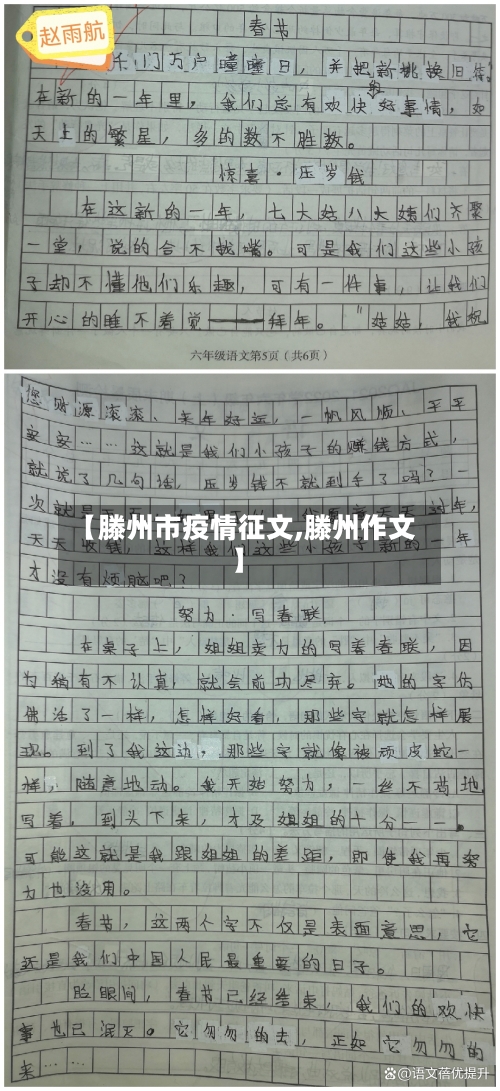 赵雨航
春节
千门万户瞳瞳日，并把新桃换旧符。
在新的一年里，我们总有欢快的好事情，如
天上的繁星，多的数不胜数。
惊喜·压岁钱
在这新的一年，七大姑八大姨们齐聚
一堂，说的合不拢嘴。可是我们这些小孩
子却不懂他们乐趣，可有一件事，让我们
开心的睡不着觉——拜年。"姑姑，我祝
六年级语文第5页（共6页）
您财源滚滚、来年好运，一帆风顺、平平
安安……这就是我们小孩子的赚钱方式，
就说了几句话，压岁钱不就到手了吗？一
次就是
过年，
天天收钱，这样我们这些小孩子新的一年
才没有烦脑吧？
【滕州市疫情征文,滕州作文
】
努力·写春联
在桌子上，姐姐卖力的写着春联，因
为稍有不认真，就会前功尽弃。她的字仿
佛活了一样，怎样好看，那些字就怎样展
现。到了我这边，那些字就像被顽皮蛇一
样，随意地动。我开始努力，一丝不苟地
写着，到头下来，才及姐姐的十分一一。
可能这就是我跟姐姐的差距，即使我再努
力也没用。
春节，这两个字不仅是表面意思，它
还是我们中国人民最重要的日子。
眙眼间，春节已经结束，我们的欢快
事也已泯灭。它匆匆的去，正如它匆匆的
来……
@语文蓓优提升